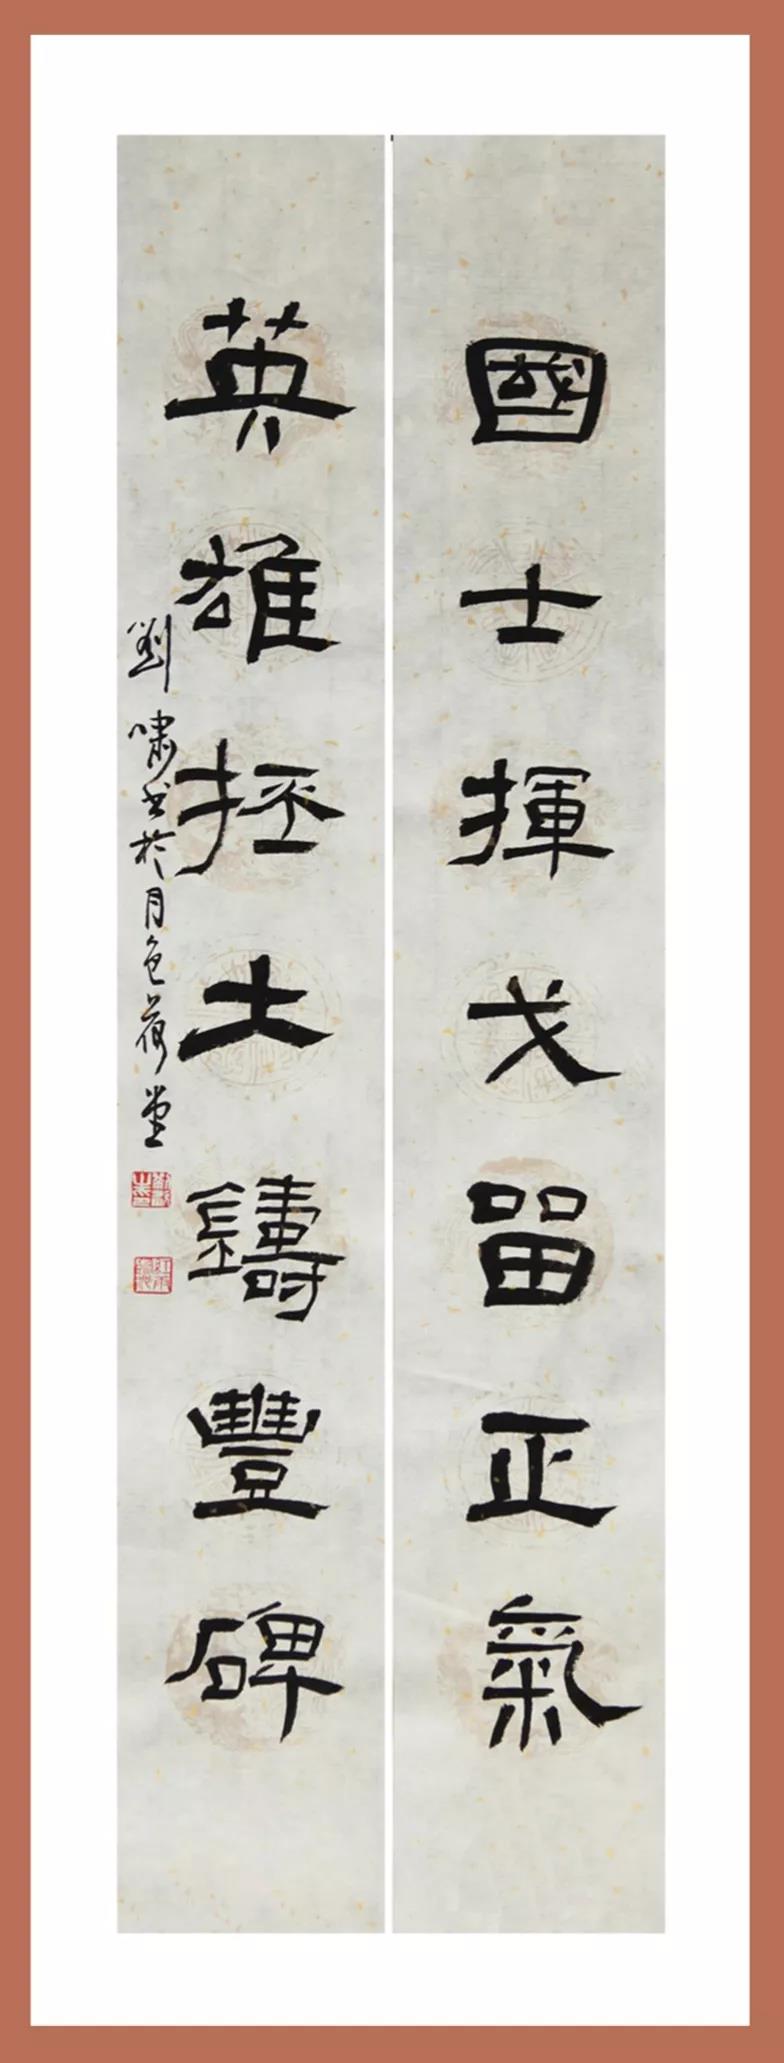 國士揮戈留正氣
英雄抷土鑄豐碑
劉嘯書於月色荷堂